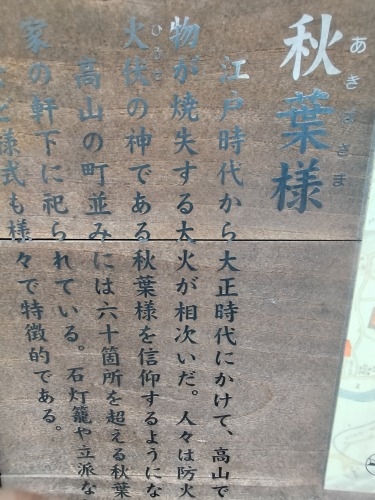 秋葉様
あきはさま
江戸時代から大正時代にかけて、高山で
物が焼失する大火が相次いだ。人々は防火
火徒の神である秋葉様を信仰するようにな
高山の町並みには六十箇所を超える秋葉
家の軒下に祀られている。石灯籠や立派な
様式も様々で特徴的である。